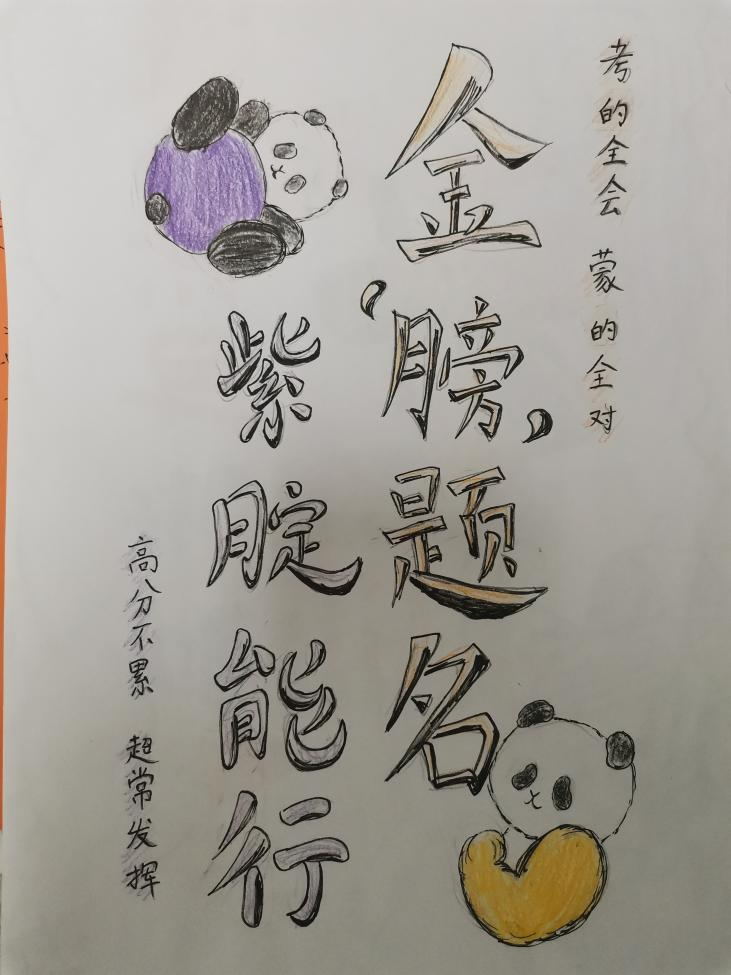 考的全会 蒙的全对
金膀题名
紫腚能行
高分不累 超常发挥